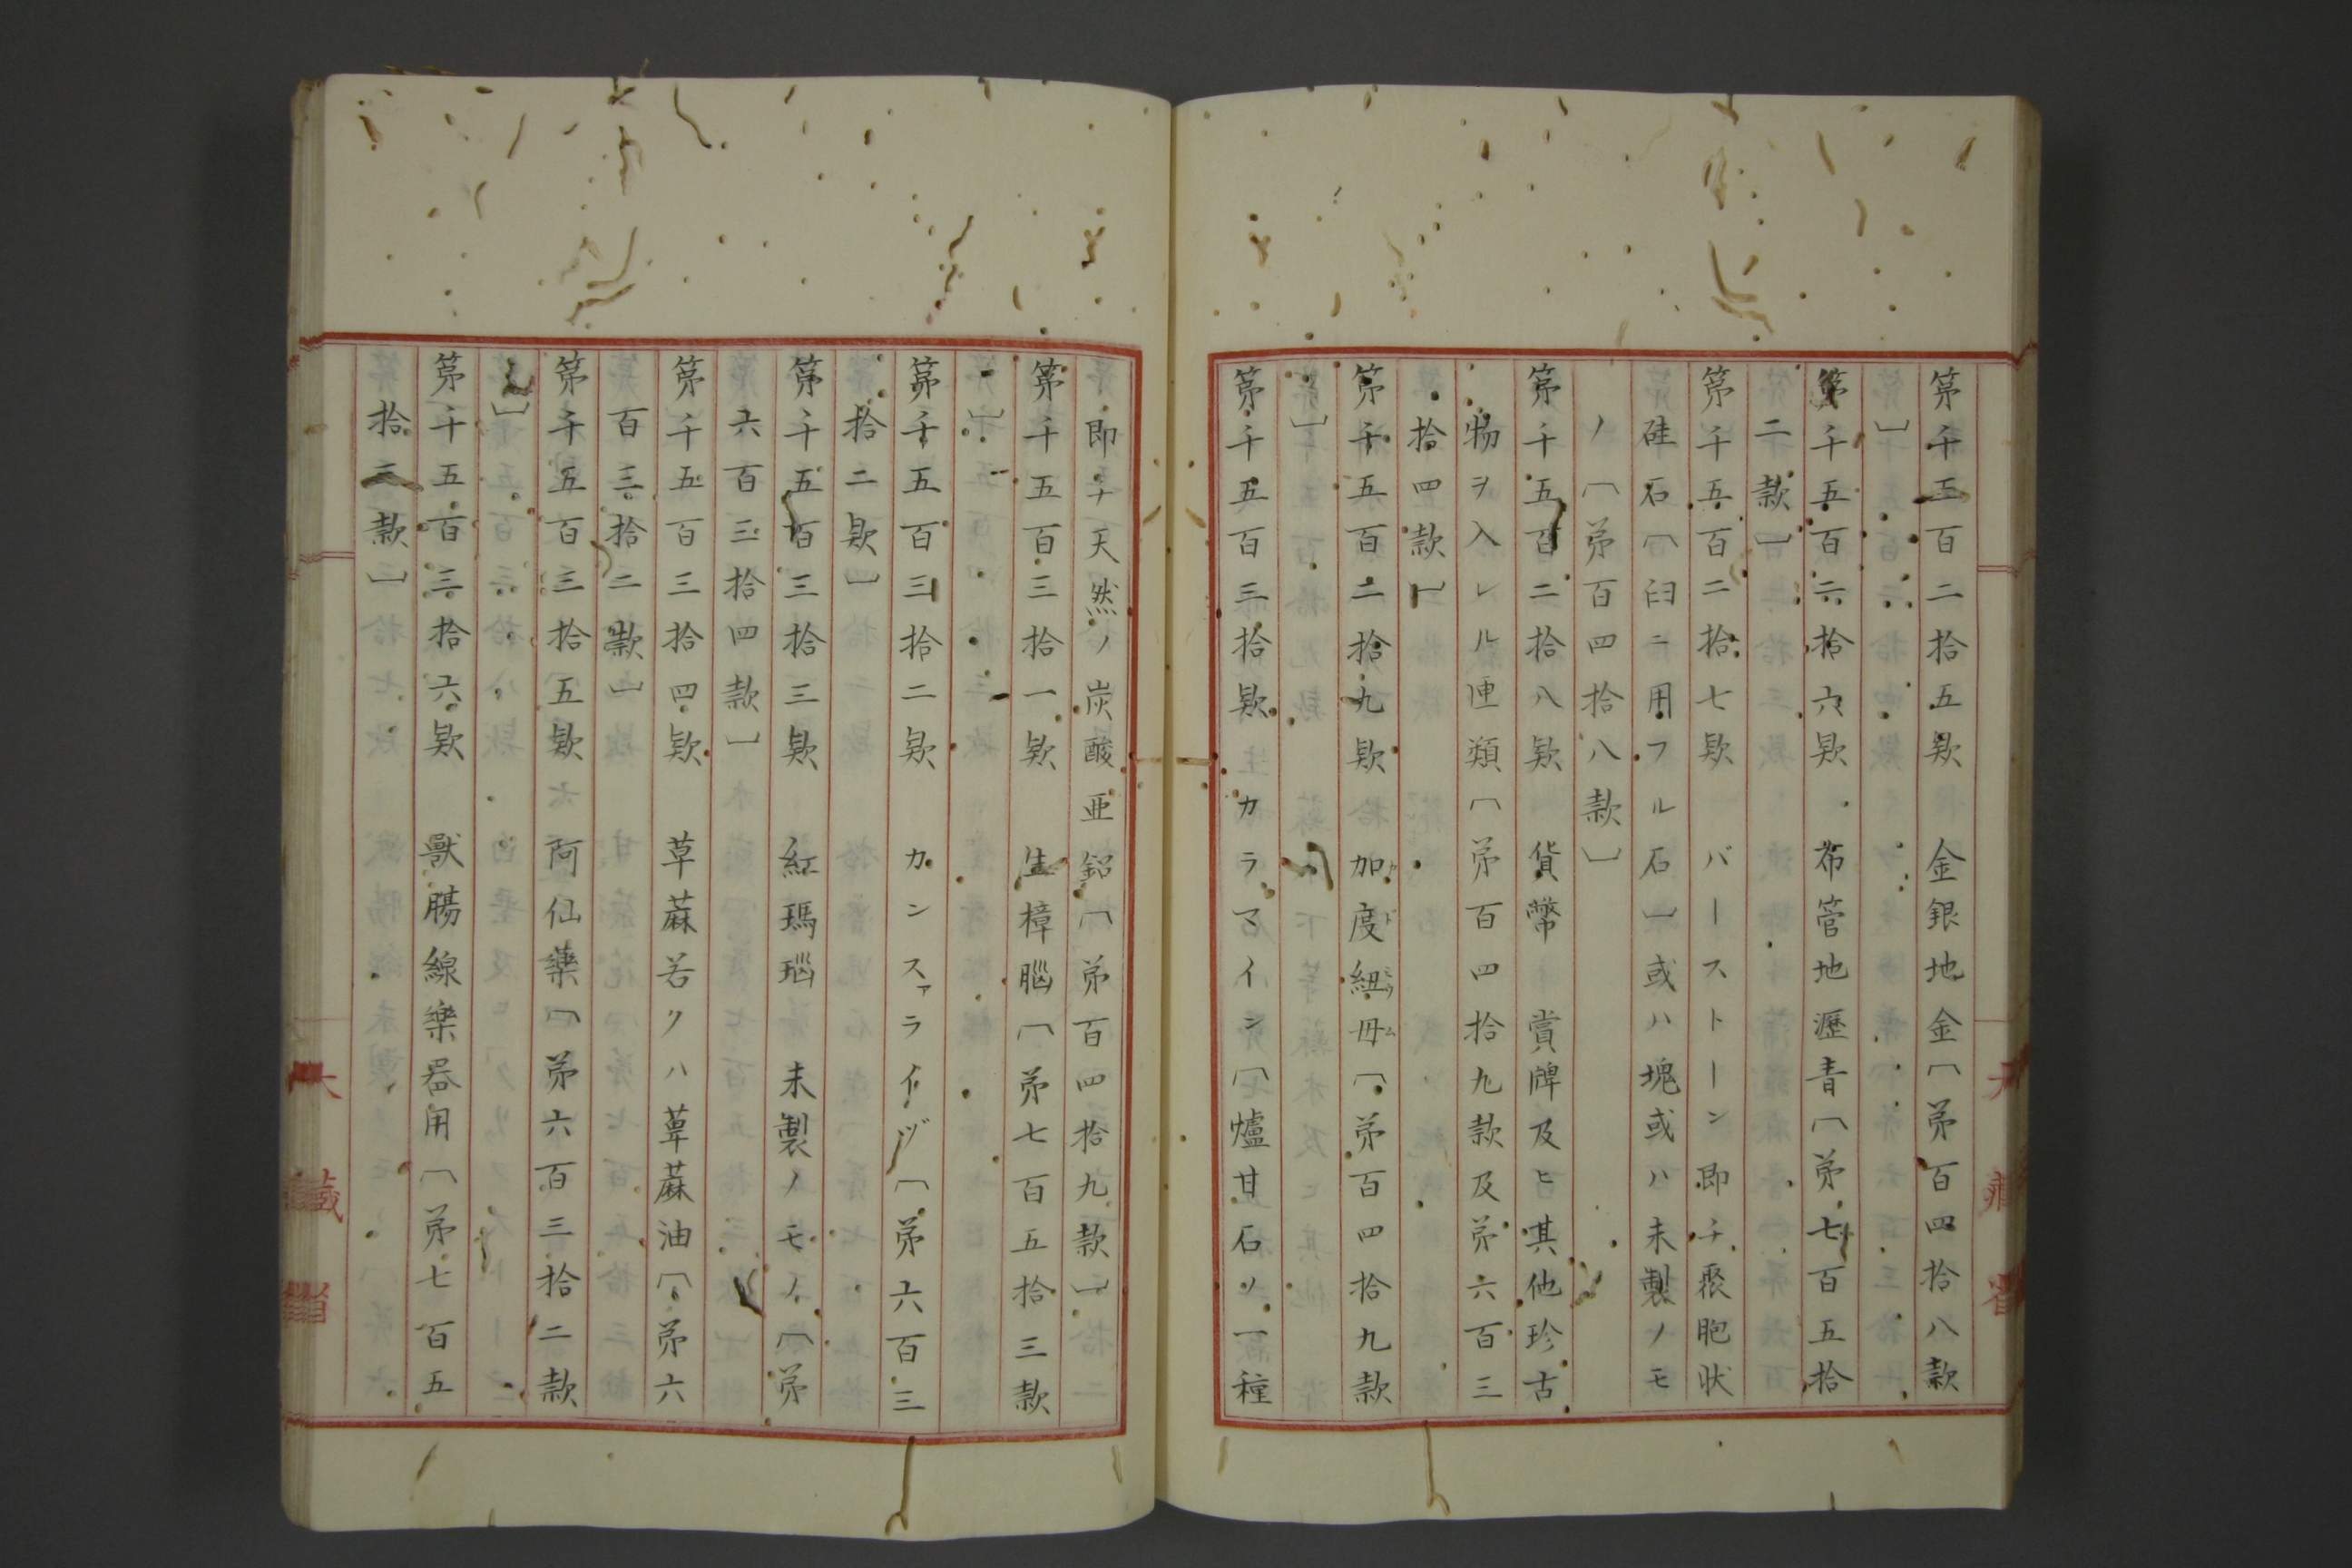 第千五百二拾五欵　金銀地金〔第百四拾八款
〕
第千五百二拾六欵　布管地瀝青〔第七百五拾
二款〕
第千五百二拾七欵　バーストーン即チ聚胞状
硅石〔臼ニ用フル石〕或ハ塊或ハ未製ノモ
ノ〔第百四拾八款〕
第千五百二拾八欵　貨幣　賞牌及ヒ其他珍古
物ヲ入レル匣類〔第百四拾九款及第六百三
拾四款〕
第千五百二拾九欵　加度紐母〔第百四拾九款
〕
第千五百三拾欵　カラマイン〔爐甘石ノ一種
即チ天然ノ炭酸亜鉛〔第百四拾九款〕
第千五百三拾一欵　生樟腦〔第七百五拾三款
〕
第千五百三拾二欵　カンスァライヅ〔第六百三
拾二欵〕
第千五百三拾三欵　紅瑪瑙　未製ノモノ〔第
六百三拾四款〕
第千五百三拾四欵　草蔴若クハ萆蔴油〔第六
百三拾二款〕
第千五百三拾五欵　阿仙藥〔第六百三拾二款
〕
第千五百三拾六欵　獸膓線樂器用〔第七百五
拾三款〕
大藏省